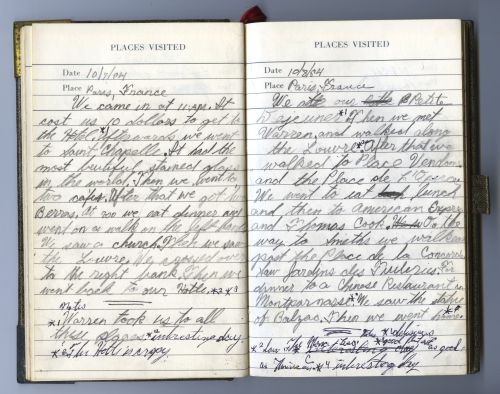 PLACES VISITED
Date 10/7/04
Place Paris, France
We came in at 11 a.m. It
cost us 10 dollars to get to
the Hotel. *1 Afterwards we went
to Saint Chapelle. It had the
most beutiful stained glass
in the world. Then we went to
two cafes. After that we got
we eat dinner and
went on a walk on the left bank
We saw a church. Then we saw
the Louvre. We crossed over
to the right bank. Then we
went back to our Hotle. *2 *3
Notes
*1 Warren took us to all
these places *2 intrestine day
*3 Our Hotle is crapy
PLACES VISITED
Date 10/8/04
Place Paris, France
We ate our Petite
Dejeunet *1 Then we met
Warren, and walked along
the Louvre. After that we
walked to Place Vendom,
and the Place de L'Opera.
We went to eat lunch
and then to American Express
and Thomas Cook. On the
way to Smiths we walked
past the Place de la Concorde
saw Jardins des Tuileries. For
dinner to a Chinese Restaurant in
Montparnasse. *3 We saw the statue
of Balzac. Then we went home. *4
as good
as *4 intrestog day